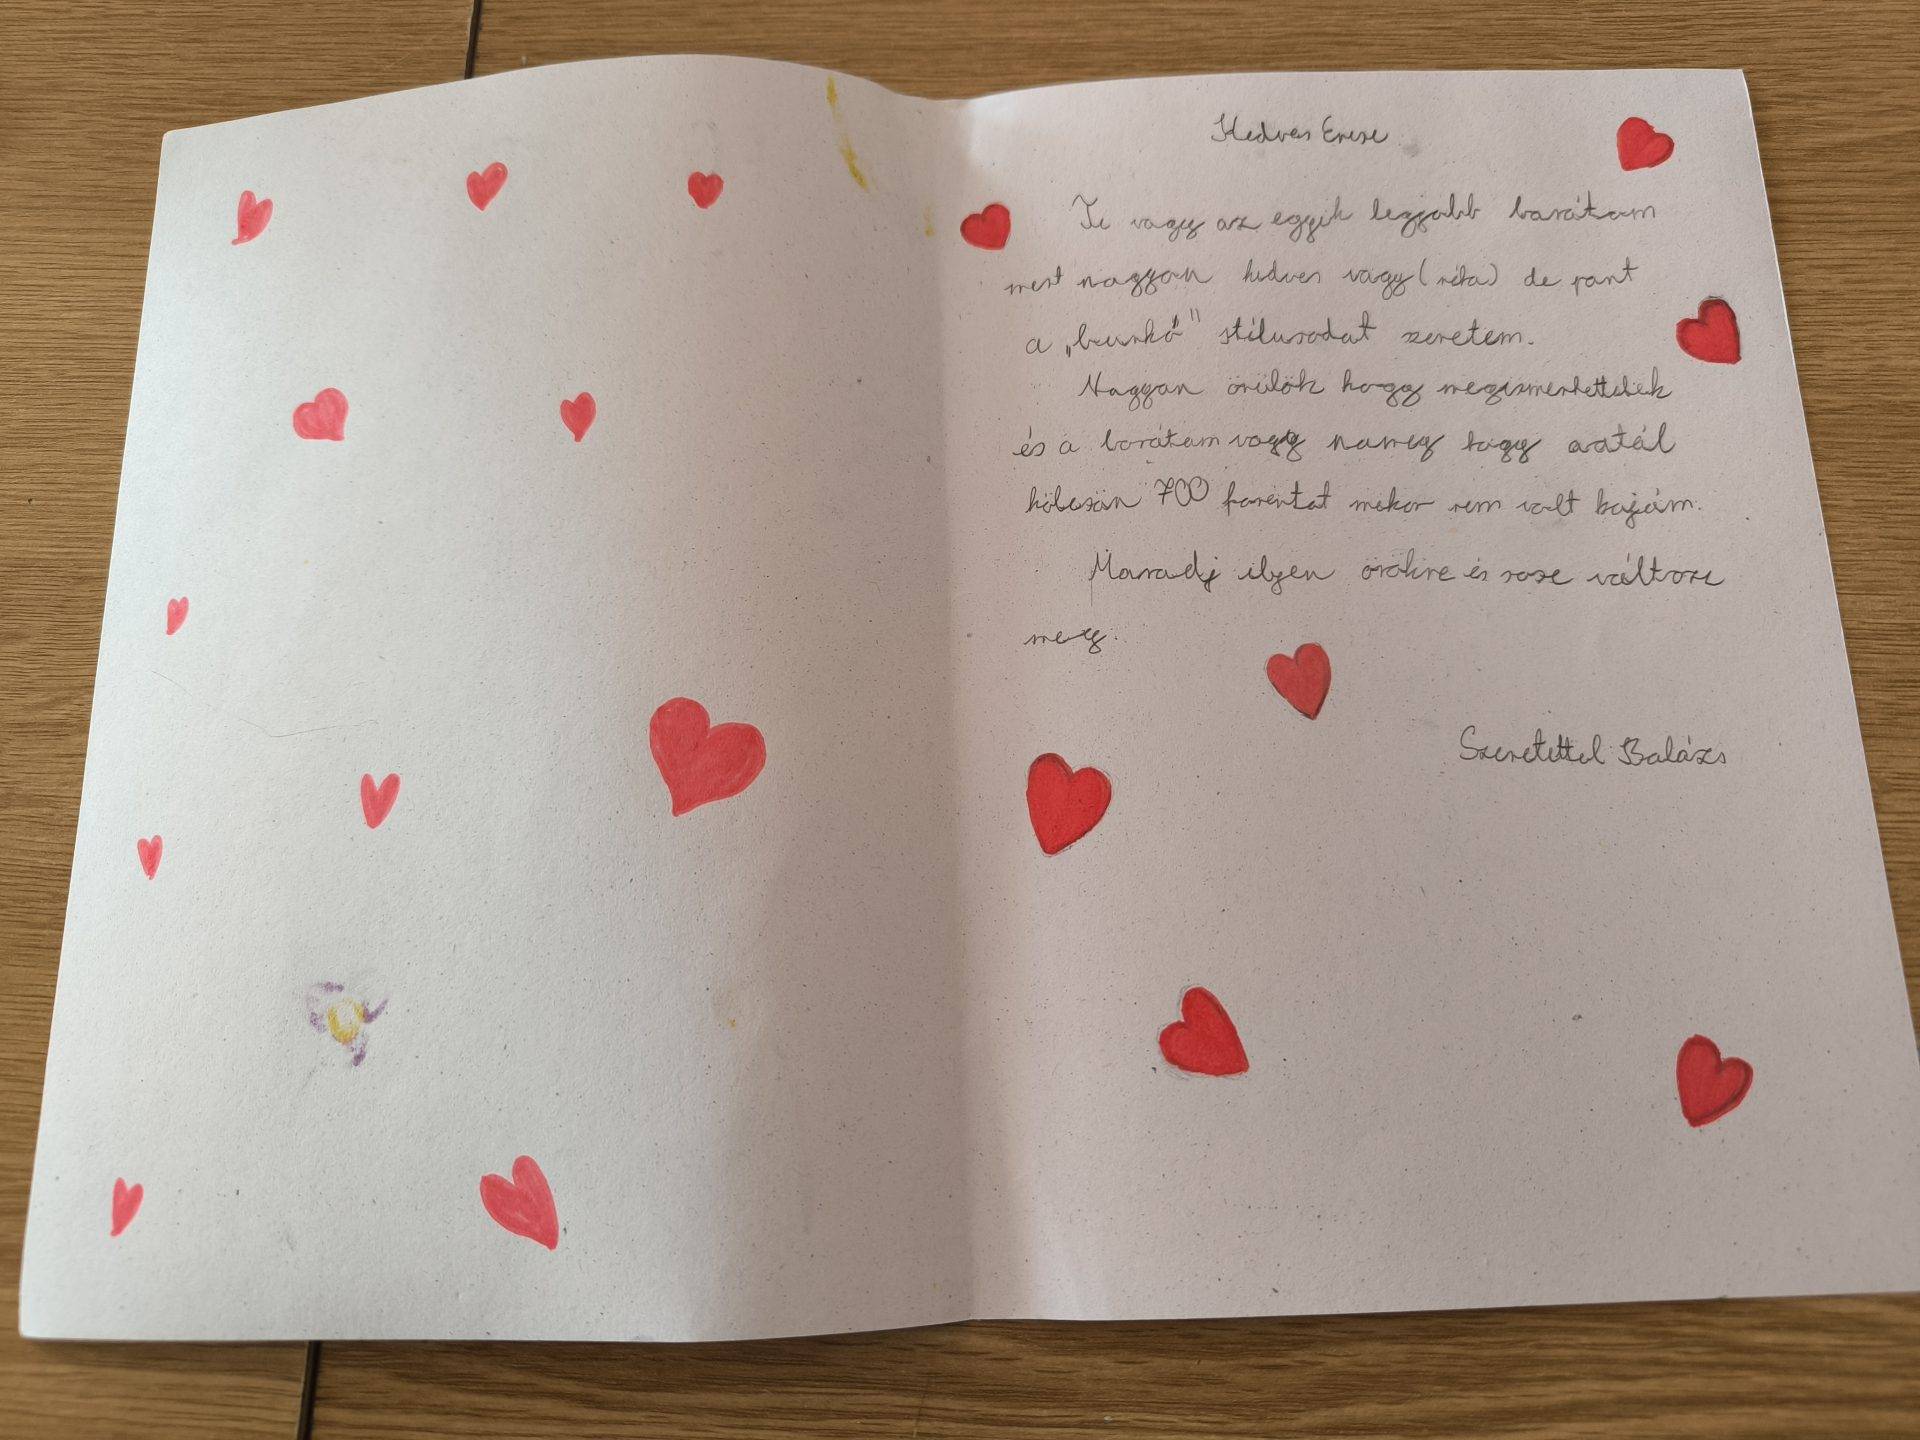 Kedves Emese
Te vagy az egyik legjobb barátom
mert nagyon kedves vagy (néha) de pont
a „bunkó" stílusodat szeretem.
Nagyon örülök hogy megismerhettelek
és a barátom vagy hogy adtál
kölcsön 700 forintot mikor nem volt kajám.
Maradj ilyen örökre és sose változz
meg.
Szeretettel Balázs